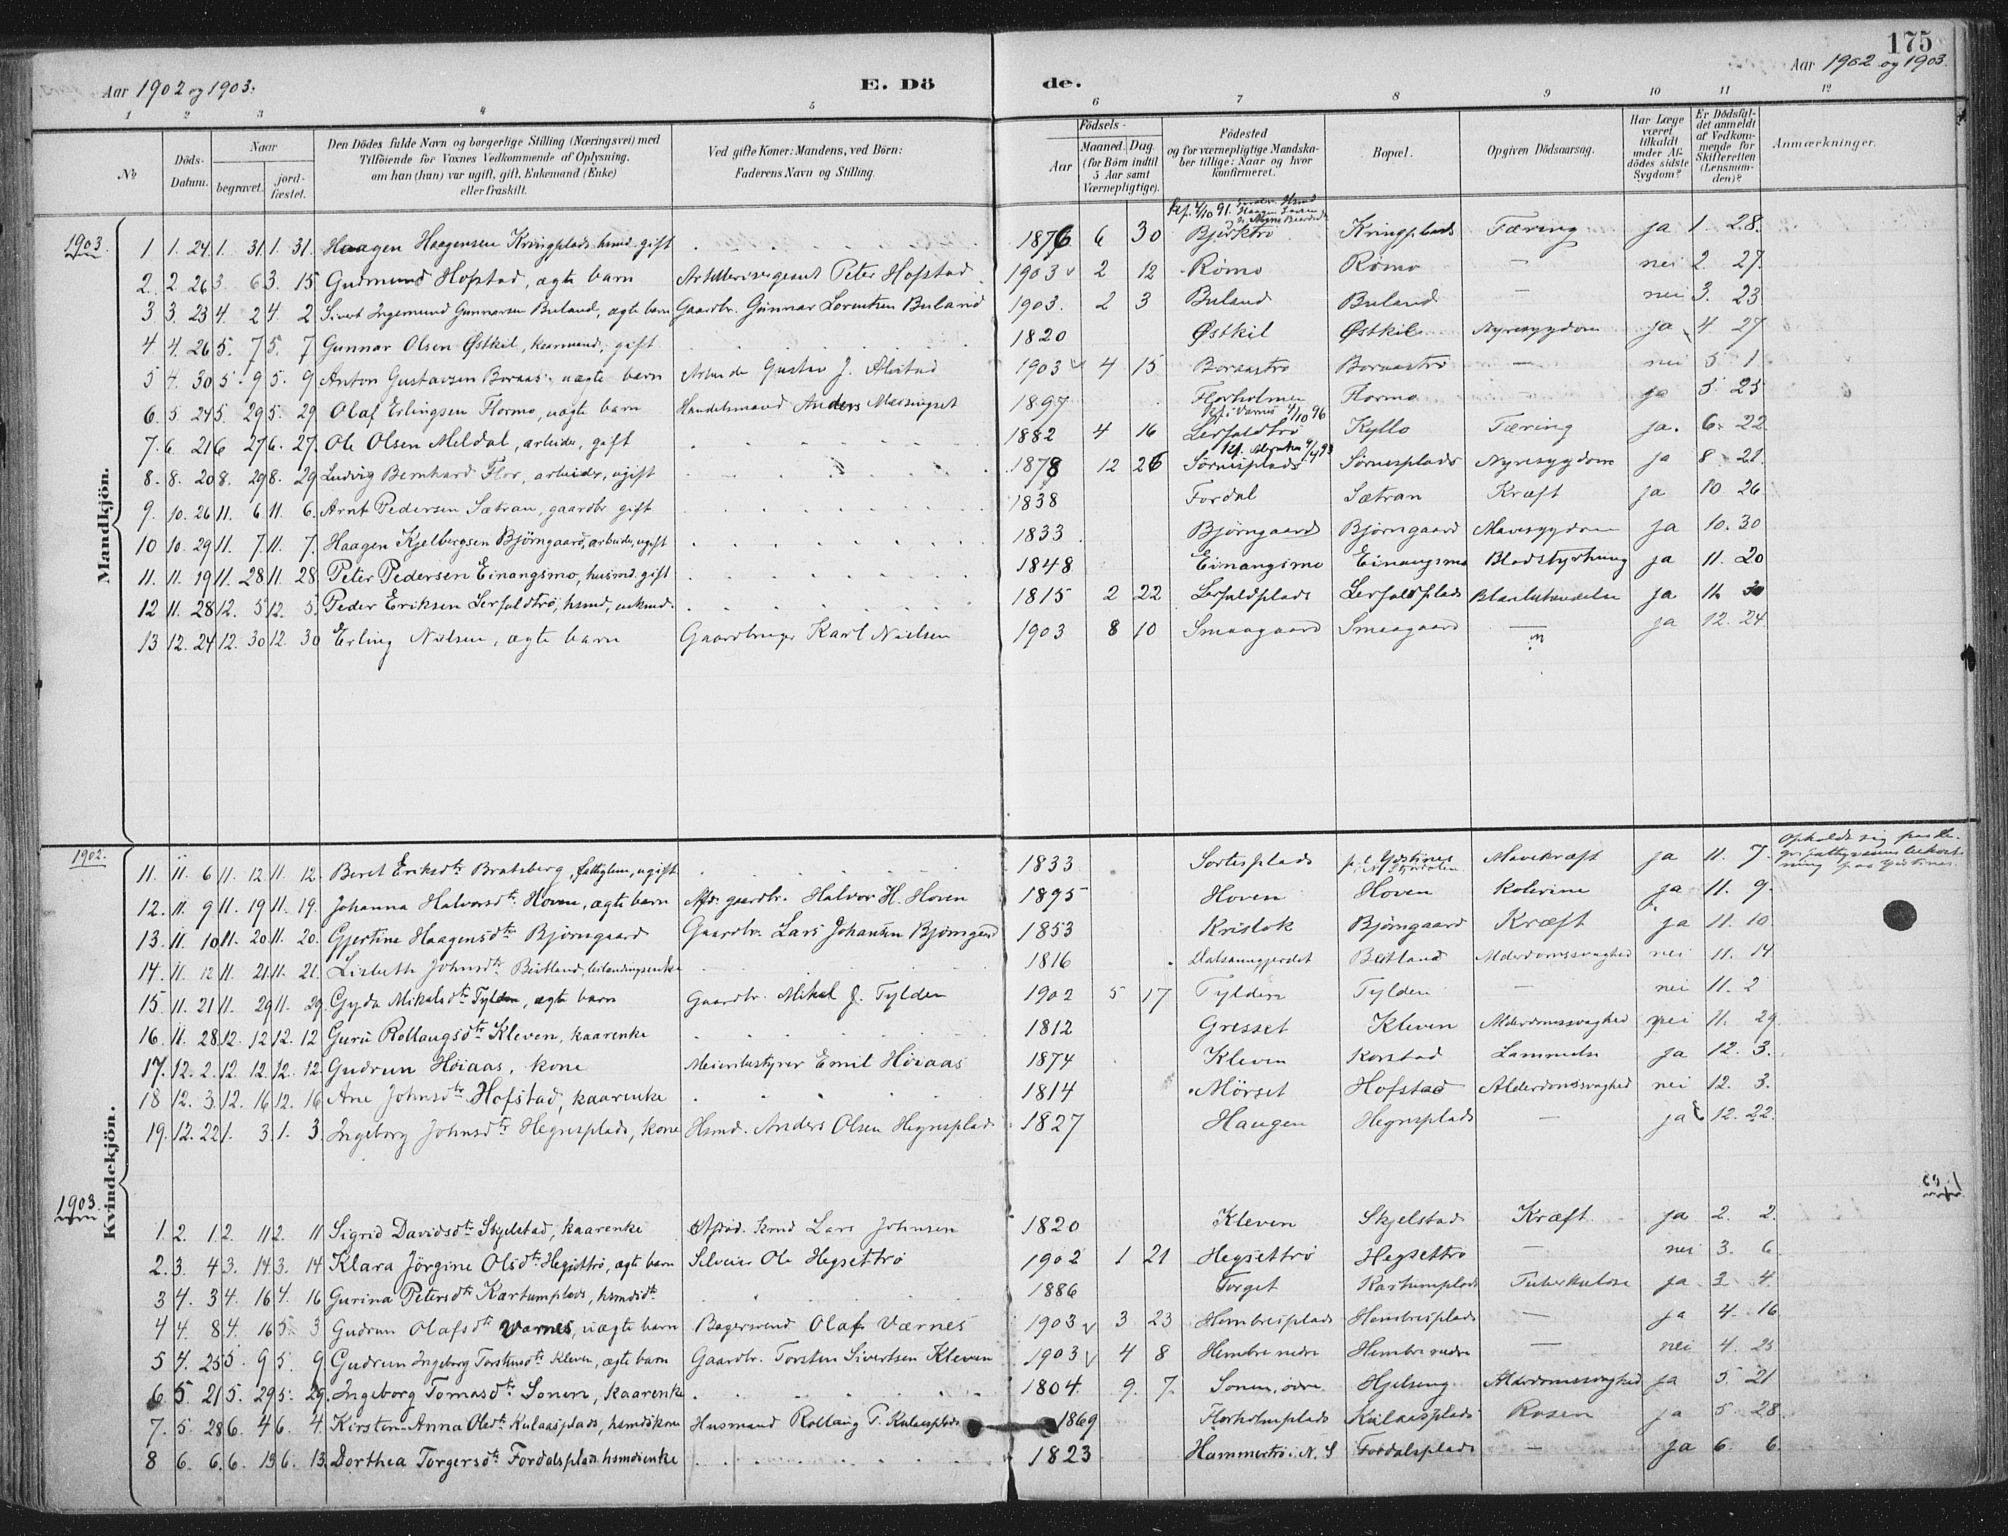 175
Aar 1902 og 1903.
E. Dö
de.
Aar 1902 og 1903.
1 2 3 4 5 6 7 8 9 10 11 12
№
Döds-Datum.
Naar
begravet.
jord-fæstet.
Den Dödes fulde Navn og borgerlige Stilling (Næringsvei) med
Tilföiende for Voxnes Vedkommende af Oplysning,
om han (hun) var ugift, gift, Enkemand (Enke)
eller fraskilt.
Ved gifte Koner: Mandens, ved Börn:
Faderens Navn og Stilling.
Födsels-
Aar
Maaned. Dag
(for Börn indtil
5 Aar samt
Værnepligtige).
Födested
og for værnepligtige Mandska-
ber tillige: Naar og hvor
konfirmeret.
Bopæl.
Opgiven Dödsaarsag.
Har Læge
været
tilkaldt
under Af-
dödes sidste
Sygdom?
Er Dödsfal-
det anmeldt
af Vedkom-
mende for
Skifteretten
(Lensman-
den)?
Anmærkninger.
Mandkjön.
1903.
1 1. 24 1. 31 1. 31. Haagen Haagensen Kringplads, hsmd. gift 1876 6 30 Bjerktrø Kringplads Tæring ja 1. 28.
2. 2 26 3. 6 3. 15 Gudmund Hofstad, ægte barn Artillerisergeant Peter Hofstad 1903 2 12 Rømo Rømo — nei 2 27.
3 3. 23 4. 2 4. 2 Sivert Ingemund Gunnarsen Buland, ægte barn Gaardbr. Gunnar Lorentsen Buland 1903. 2 3 Buland Buland — nei 3. 23
4 4. 26 5. 7 5. 7 Gunnar Olsen Østkil, kaarmand, gift 1820 Østkil Østkil Nyresygdom ja 4 27
5 4. 30 5. 9 5. 9 Anton Gustavsen Boraas, uægte barn Arbeider Gustav J. 1903 4 15 Boraastrø Boraastrø — nei 5 1
6. 5 24 5. 29 5. 29 Olaf Erlingsen Flormo, uægte barn Handelsmand Anders 1897 Florholmen Flormo ja 5. 25
7. 6. 21 6 27 6. 27. Ole Olsen Meldal, arbeider, gift 1882 4 16 Lerfaldtrø Kyllo Tæring ja. 6. 22
8. 8. 20 8. 29 8. 29 Ludvig Bernhard Flor, arbeider, ugift 1878 12 26 Sørnesplads Sørnesplads Nyresygdom ja 8 21.
9. 10. 26 11. 6. 11. 6. Arnt Pedersen Sætran, gaardbr gift 1838 Fordal Sætran Kræft ja 10 26
10 10. 29 11. 7. 11. 7. Haagen Kjelbergsen Bjørngaard, arbeider, ugift 1833 Bjørngaard Bjørngaard Mavesygdom ja 10. 30
11. 11. 19 11. 28 11. 28 Peter Pedersen Einangsmo, husmd. gift 1848 Einangsmo Einangsmo Blodstyrtning ja 11. 20
12 11. 28 12. 5 12. 5. Peder Eriksen Lerfaldtrø, hsmd, enkmd. 1815 2 22 Lerfaldplads Lerfaldplads ja 11. 30
13 12. 24 12. 30 12. 30 Erling Nilsen, ægte barn Gaardbruger Karl Nielsen 1903 8 10 Smaagaard Smaagaard — ja 12. 24
Kvindekjön.
1902.
11. 11. 6 11. 12 11. 12. Beret Eriksdtr Bratsberg, fattiglem, ugift 1833 Sortesplads Mavekræft ja 11. 7.
12. 11. 9 11. 19 11. 19. Johanna Halvorsdtr. Hoven, ægte barn Afd. gaardbr. Halvor H. Hoven 1895 Hoven Hoven Kolerine ja 11. 9.
13. 11. 10 11. 20 11. 20. Gjertine Haagensdtr Bjørngaard Gaardbr. Lars Johansen Bjørngaard 1853 Krislok Bjørngaard Kræft ja 11. 10
14. 11. 12 11. 21 11. 21. Lisbeth Johnsdtr. Beitland, 1816 Beitland Alderdomssvaghed nei 11. 14
15 11. 21 11. 29 11. 29. Gyda Mikalsdtr. Tylden, ægte barn Gaardbr. Mikal J. Tylden 1902 5 17 Tylden Tylden — nei 11. 2
16. 11. 28 12. 12 12. 12 Guru Rollaugsdtr Kleven, kaarenke 1812 Gresset Kleven Alderdomssvaghed nei 11. 29.
17. 12. 2. 12. 12 12. 12 Gudrun Høiaas, kone Meieribestyrer Emil Høiaas 1874 Kleven Korstad Lammelse ja 12. 3.
18 12. 3. 12. 16 12. 16 Ane Johnsdtr Hofstad, kaarenke 1814 Mørset Hofstad Alderdomssvaghed nei 12. 3.
19. 12. 22 1. 3 1. 3 Ingeborg Johnsdtr Hegnsplads, kone Hsmd. Anders Olsen Hegnsplads 1827 Haugen Hegnsplads — ja 12. 22.
1903.
1. 2. 1. 2 11 2. 11 Sigrid Davidsdtr. Skjelstad, kaarenke Afdød. Lars Johnsen 1820 Kleven Skjelstad Kræft ja 2. 2.
2. 3. 4 3. 14 3. 14 Klara Jörgine Olsdtr Hegsettrø, ægte barn Selveier Ole Hegsettrø 1902 1 21 Hegsettrø Hegsettrø — nei 3. 6
3 4. 3 4. 16 4. 16 Gurina Petersdtr Kartumplads, hsmdsdtr. 1886 Torget Kartumplads Tuberkulose ja 3 4.
4 4. 8 4. 16 5. 3 Gudrun Olafsdtr Værnes, uægte barn Bagersvend Olaf Værnes 1903 3 23 Hembresplads Hembresplads — ja 4. 16
5 4. 25 5. 9 5. 9 Gudrun Ingeborg Torstensdtr Kleven, ægte barn Gaardbr. Torsten Sivertsen Kleven 1903 4 8 Hembre nedre Hembre nedre — nei 4. 25
6 5. 21 5. 29 5. 29. Ingeborg Tomasdtr. Sonen, kaarenke 1804. 9. 7. Sonen, øvre Hjelseng Alderdomssvaghed ja 5. 21
7. 5. 28 6. 4 6. 4. Kirsten Anna Olsdtr. Kulaasplads, hsmdskone Husmand Rollaug T. Kulaasplads 1869 Florholmplads Kulaasplads Rosen ja 5 28.
8 6. 6. 6. 13 6. 13. Dorthea Torgersdtr Fordalsplads hsmdsenke 1823 Hammertrø i N. S Fordalsplads — ja 6. 6.